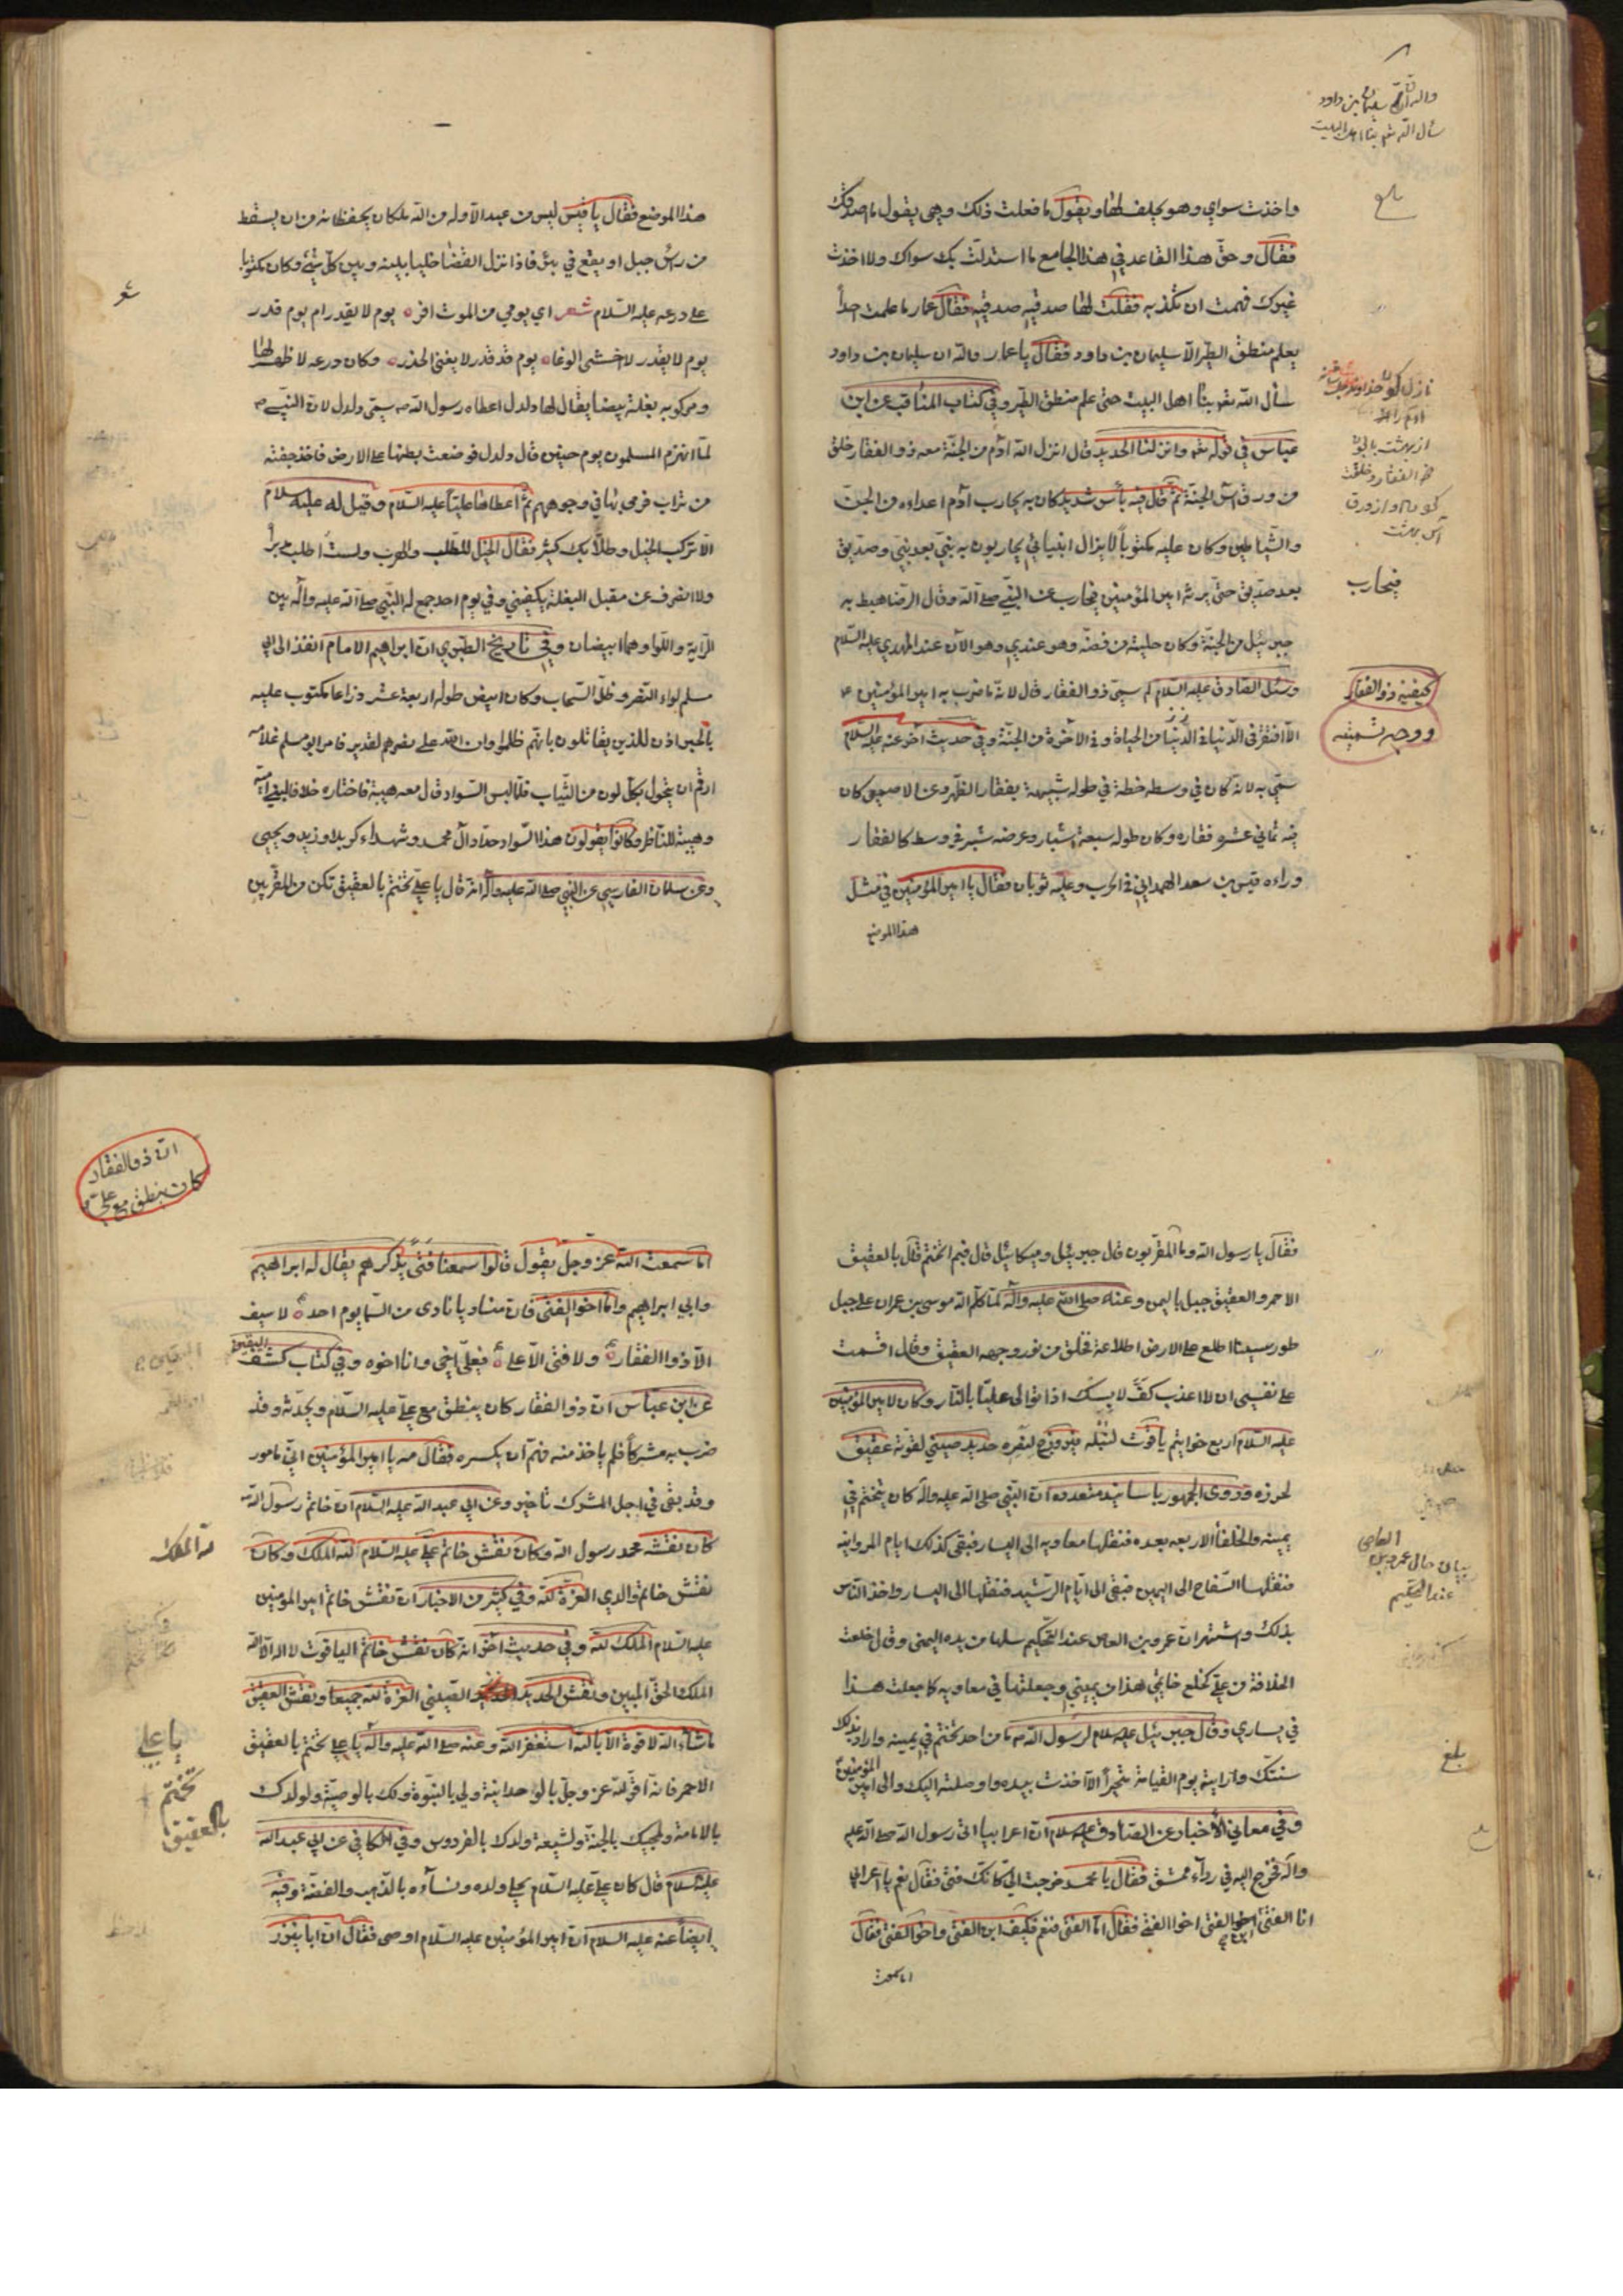 واخذت سواي وهو يحلف لها ويقول ما فعلت ذلك وهي يقول ما اصدقك
فقال وحق هذا القاعد في هذا الجامع ما استدلت بك سواك ولا اخذت
غيرك فهمت ان تكذبه فقلت لها صدقيه صدقيه فقال عمار ما علمت احداً
يعلم منطق الطير الا سليمان بن داود فقال يا عمار والله ان سليمان بن داود
سأل الله بنا اهل البيت حتى علم منطق الطير وفي كتاب المناقب عن ابن
عباس في قوله تعو وانزلنا الحديد قال انزل الله آدم من الجنة معه ذو الفقار خلق
من ورق آس الجنة ثم قال فيه بأس شديد كان به يحارب آدم اعداءه من الجن
والشياطين وكان عليه مكتوباً لا يزال انبيائي يحاربون به نبي بعد نبي وصديق
بعد صديق حتى يرثه امير المؤمنين فيحارب عن النبي صلى الله وقال الرضا هبط به
جبرئيل من الجنة وكان حليته من فضة وهو عندي وهو الآن عند المهدي عليه السلام
وسئل الصادق عليه السلام لم سمى ذو الفقار قال لانه ما ضرب به امير المؤمنين ع
الا افتقر في الدنيا من الحياة وفي الآخرة من الجنة وفي حديث آخر عنه عليه السلام
سمى به لانه كان في وسطه خطة في طوله شبيهة بفقار الظهر وعن الاصمعي كان
فيه ثماني عشرة فقاره وكان طوله سبعة اشبار وعرضه شبر في وسط كالفقار
وراءه قيس بن سعد الهمداني في الحرب وعليه ثوبان فقال يا امير المؤمنين في مثل
هذا الموضع
والله ان سليمان بن داود
سأل الله بنا اهل البيت
بلغ
از بهشت
ذو الفقار
از ورق
آس بهشت
فيحارب
كيفية ذو الفقار
ووجه تسميته
هذا الموضع فقال يا قيس ليس من عبد الا وله من الله ملكان يحفظانه من ان يسقط
من رأس جبل او يقع في بئر فاذا نزل القضا خليا بينه وبين كل شئ وكان مكتوبا
على درعه عليه السلام شعر اي يومي من الموت افر ه يوم لا يقدر ام يوم قدر
يوم لا يقدر لا اخشى الوغا ه يوم قد قدر لا يغني الحذر ه وكان درعه لا ظهر لها
ومركوبه بغلة بيضأ يقال لها دلدل اعطاه رسول الله ص سمى دلدل لان النبي ص
لما انهزم المسلمون يوم حنين قال دلدل فوضعت بطنها على الارض فاخذ حفنة
من تراب فرمى بها في وجوههم ثم اعطاها علياً عليه السلام وقيل له عليه سلام
الا تركب الخيل وطلابك كثير فقال الخيل للطلب والهرب ولست اطلب مدبراً
ولا انصرف عن مقبل البغلة يكفيني وفي يوم احد جمع له النبي صلى الله عليه وآله بين
الراية واللواء وهما ابيضان وفي تاريخ الطبري ان ابراهيم الامام انفذ الى ابي
مسلم لواء النصر وظل السحاب وكان ابيض طوله اربعة عشر ذراعا مكتوب عليه
بالحبر اذن للذين يقاتلون بانهم ظلموا وان الله على نصرهم لقدير فامر ابو مسلم غلامه
ارقم ان يتحول بكل لون من الثياب فلما لبس السواد قال معه هيبة فاختاره خلافا لبني امية
وهيبة للناظر وكانوا يقولون هذا السواد حداد آل محمد وشهداء كربلا وزيد ويحيى
وعن سلمان الفارسي عن النبي صلى الله عليه وآله انه قال يا علي تختم بالعقيق تكن من المقربين
فقال يا رسول الله وما المقربون قال جبرئيل وميكائيل قال فبم اتختم قال بالعقيق
الاحمر والعقيق جبل باليمن وعنه صلى الله عليه وآله لما كلم الله موسى بن عمران على جبل
طور سينا اطلع على الارض اطلاعة فخلق من نور وجهه العقيق وقال اقسمت
على نفسي ان لا اعذب كف لابسك اذا توالى عليا بالنار وكان لامير المؤمنين
عليه السلام اربع خواتيم ياقوت لنبله فيروزج لنصره حديد صيني لقوته عقيق
لحرزه وروى الجمهور باسانيد متعدده ان النبي صلى الله عليه وآله كان يتختم في
يمينه والخلفأ الاربعه بعده فنقلها معاويه الى اليسار فبقى كذلك ايام المروانيه
فنقلها السفاح الى اليمين فبقى الى ايام الرشيد فنقلها الى اليسار واخذ الناس
بذلك واشتهر ان عمرو بن العاص عند التحكيم سلها من يده اليمنى وقال خلعت
الخلافة من علي كخلع خاتمي هذا من يميني وجعلتها في معاويه كما جعلت هذا
في يساري وقال جبرئيل عليه سلام لرسول الله ص ما من احد تختم في يمينه واراد بذلك
سنتك ورايته يوم القيامة متحيراً الا اخذت بيده واوصلته اليك والى امير المؤمنين
وفي معاني الأخبار عن الصادق عليه سلام ان اعرابيا اتى رسول الله صلى الله عليه
وآله فخرج اليه في ردآء ممشق فقال يا محمد خرجت الي كانك فتى فقال نعم يا اعرابي
انا الفتى ابن الفتى اخو الفتى فقال اما الفتى فنعم فكيف ابن الفتى واخو الفتى فقال
اما سمعت
بيان حال عمرو بن العاص
عند التحكيم
بلغ
ان ذو الفقار
كان ينطق مع علي
اما سمعت الله عز وجل يقول قالوا سمعنا فتى يذكرهم يقال له ابراهيم
وابي ابراهيم واما اخو الفتى فان مناديا نادى من السما يوم احد ه لا سيف
الا ذو الفقار ه ولا فتى الا علي ه فعلي اخي وانا اخوه وفي كتاب كشف اليقين
عن ابن عباس ان ذو الفقار كان ينطق مع علي عليه السلام ويحدثه وقد
ضرب به مشركا فلم ياخذ منه فهم ان يكسره فقال مه يا امير المؤمنين اني مامور
وقد بقى في اجل المشرك تاخير وعن ابي عبد الله عليه السلام ان خاتم رسول الله
كان نقشه محمد رسول الله وكان نقش خاتم علي عليه السلام لله الملك وكان
نقش خاتم والدي العزة لله وفي كثير من الاخبار ان نقش خاتم امير المومنين
عليه السلام الملك لله وفي حديث آخر انه كان نقش خاتم الياقوت لا اله الا الله
الملك الحق المبين ونقش الحديد الصيني العزة لله جميعا ونقش العقيق
ما شاء الله لا قوة الا بالله استغفر الله وعنه صلى الله عليه وآله يا علي تختم بالعقيق
الاحمر فانه اقر لله عز وجل بالوحدانية ولي بالنبوة ولك بالوصية ولولدك
بالامامة ولمحبيك بالجنة ولشيعة ولدك بالفردوس وفي الكافي عن ابي عبد الله
عليه سلام قال كان علي عليه السلام يحلي ولده ونسآءه بالذهب والفضة وفيه
ايضاً عنه عليه السلام ان امير المؤمنين عليه السلام اوصى فقال ان ابا نيزر
لله الملك
يا علي
تختم
بالعقيق